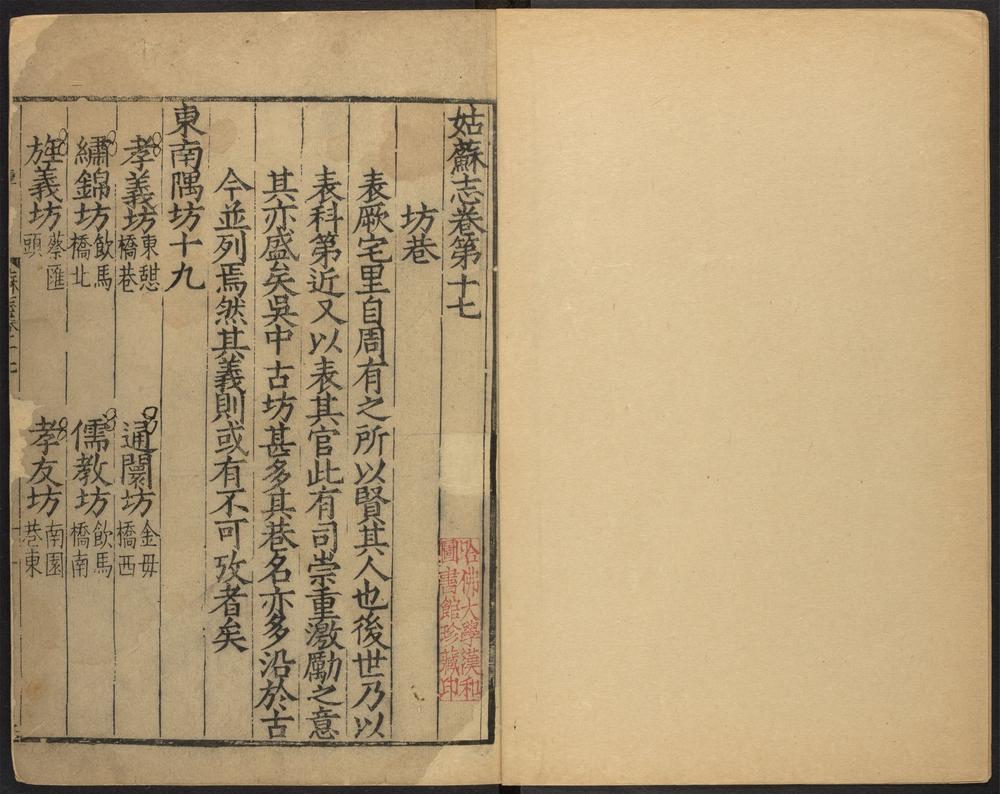 姑蘇志卷第十七
坊巷
表厥宅里自周有之所以賢其人也後世乃以
表科第近又以表其官此有司崇重激勵之意
其亦盛矣吳中古坊甚多其巷名亦多沿於古
今並列焉然其義則或有不可攷者矣
東南隅坊十九
孝義坊東憇橋巷 通闤坊金毋橋西
繡錦坊飲馬橋北 儒教坊飲馬橋南
旌義坊蔡匯頭 孝友坊南園巷東
哈佛大學漢和
圖書館珍藏印